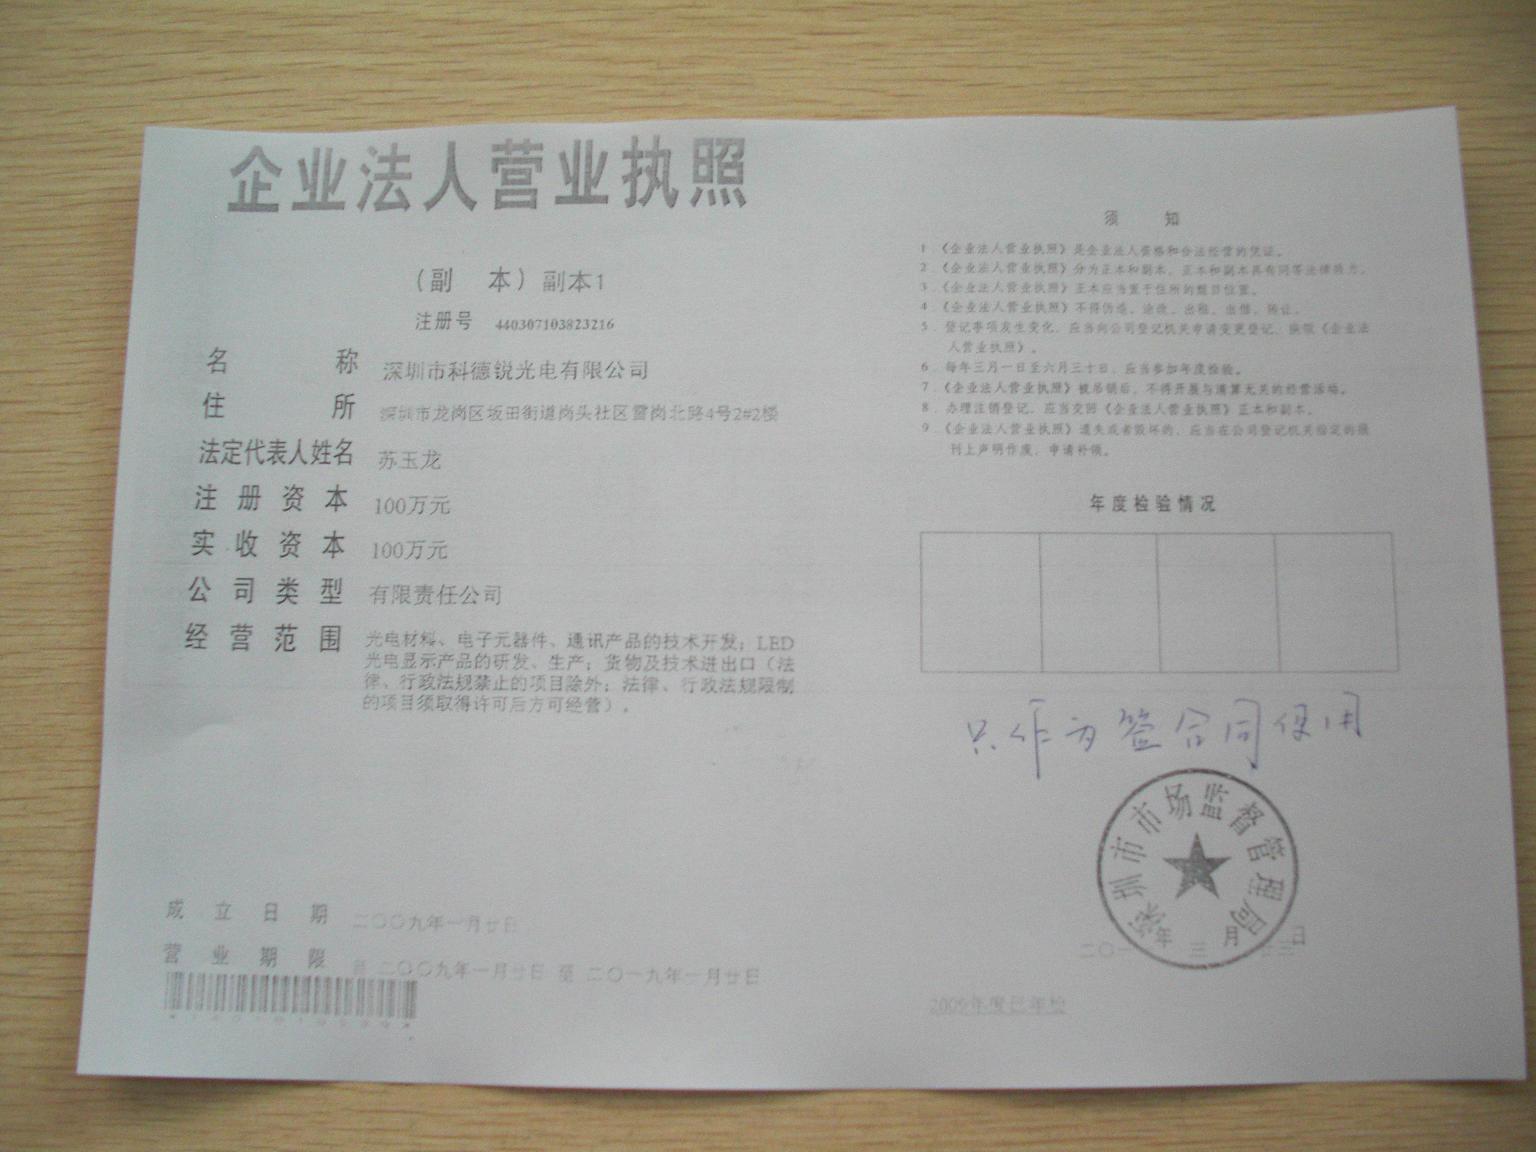 企业法人营业执照
（副 本）副本1
注册号 440307103823216
名称 深圳市科德锐光电有限公司
住所 深圳市龙岗区坂田街道岗头社区雪岗北路4号2#2楼
法定代表人姓名 苏玉龙
注册资本 100万元
实收资本 100万元
公司类型 有限责任公司
经营范围 光电材料、电子元器件、通讯产品的技术开发；LED
光电显示产品的研发、生产；货物及技术进出口（法
律、行政法规禁止的项目除外；法律、行政法规限制
的项目须取得许可后方可经营）。
成立日期 二〇〇九年一月廿日
营业期限 自 二〇〇九年一月廿日 至 二〇一九年一月廿日
须 知
1.《企业法人营业执照》是企业法人资格和合法经营的凭证。
2.《企业法人营业执照》分为正本和副本，正本和副本具有同等法律效力。
3.《企业法人营业执照》正本应当置于住所的醒目位置。
4.《企业法人营业执照》不得伪造、涂改、出租、出借、转让。
5.登记事项发生变化，应当向公司登记机关申请变更登记，换领《企业法
人营业执照》。
6.每年三月一日至六月三十日，应当参加年度检验。
7.《企业法人营业执照》被吊销后，不得开展与清算无关的经营活动。
8.办理注销登记，应当交回《企业法人营业执照》正本和副本。
9.《企业法人营业执照》遗失或者毁坏的，应当在公司登记机关指定的报
刊上声明作废，申请补领。
年度检验情况
只作为签合同使用
深圳市市场监督管理局
二〇一 年 三 月 日
2009年度已年检